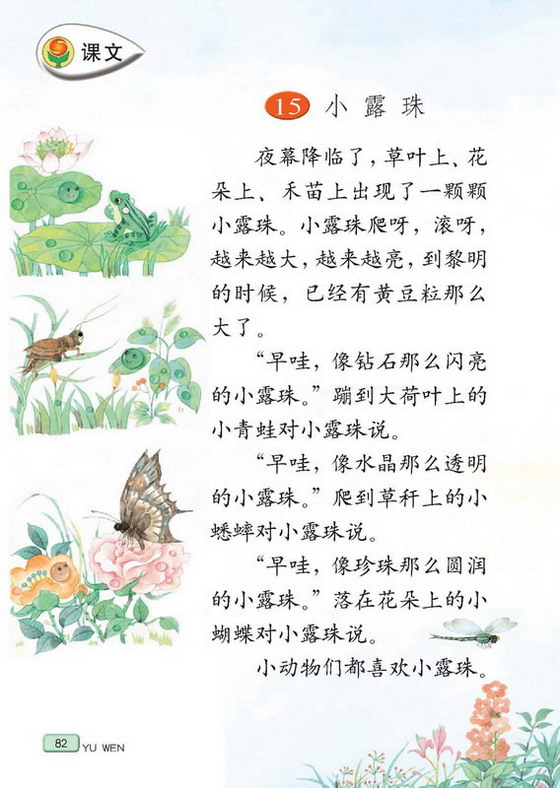 课文
15 小露珠
夜幕降临了，草叶上、花
朵上、禾苗上出现了一颗颗
小露珠。小露珠爬呀，滚呀，
越来越大，越来越亮，到黎明
的时候，已经有黄豆粒那么
大了。
“早哇，像钻石那么闪亮
的小露珠。”蹦到大荷叶上的
小青蛙对小露珠说。
“早哇，像水晶那么透明
的小露珠。”爬到草秆上的小
蟋蟀对小露珠说。
“早哇，像珍珠那么圆润
的小露珠。”落在花朵上的小
蝴蝶对小露珠说。
小动物们都喜欢小露珠。
82 YU WEN